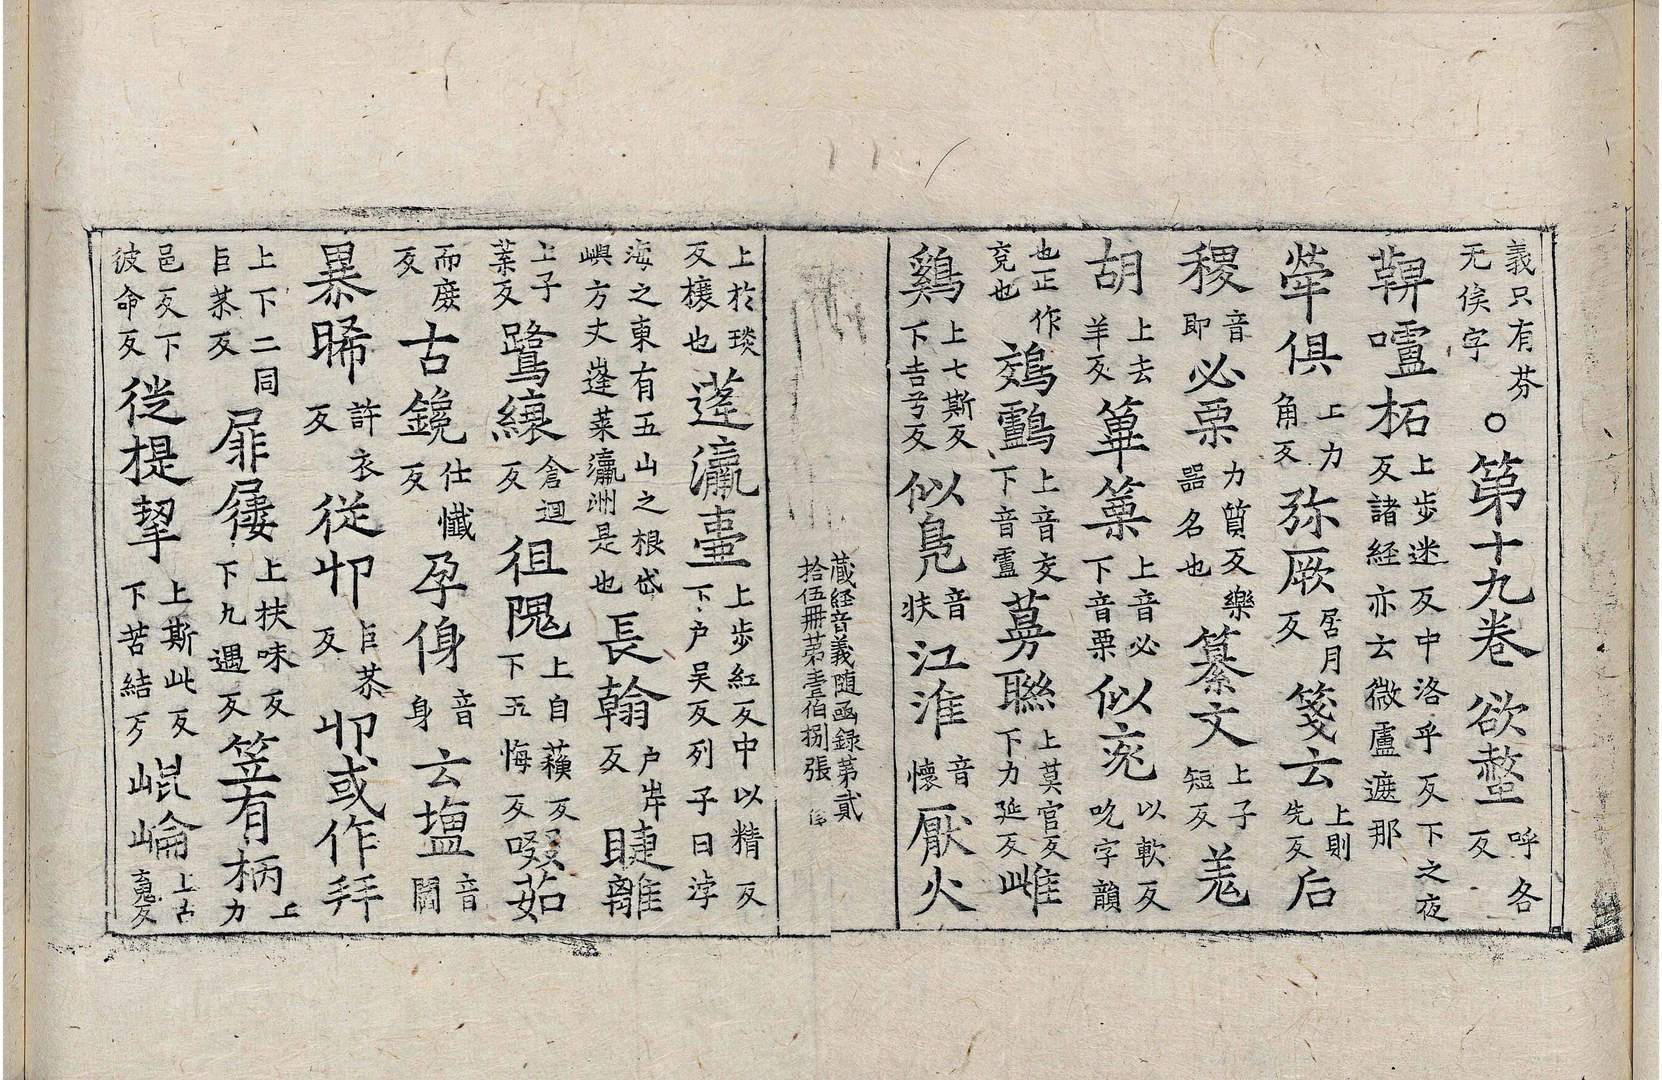 義只有芬无俟字○第十九卷欲螫呼各反
鞞嚧柘上步迷反中洛乎反下之夜反諸經亦云微盧遮那
犖俱上力角反弥厥居月反箋云上則先反后
稷音即必栗力質反樂器名也纂文上子短反羗
胡上去羊反篳篥上音必下音栗似兖以軟反吮字韻
也正作兖也鵁鸕上音交下音盧蔓聯上莫官反下力延反雌
鷄上七斯反下吉兮反似鳧音扶江淮音懷厭火
藏經音義随函録第貳
拾伍冊第壹伯捌張
上於琰反欀也蓬瀛臺上步紅反中以精反下户吴反列子曰浡
海之東有五山之根岱嶼方丈蓬莱瀛洲是也長翰户岸反睫離
上子葉反鷺縗倉迴反徂隗上自蘓反下五悔反啜茹
而庶反古鑱仕懺反孕傷音身云塩音閻
暴晞許衣反従𠨍巨恭反𠨍或作拜
上下二同巨恭反扉屨上扶味反下九遇反笠有柄上力
邑反下彼命反従提挈上斯此反下苦結反崐崘上古䰟反